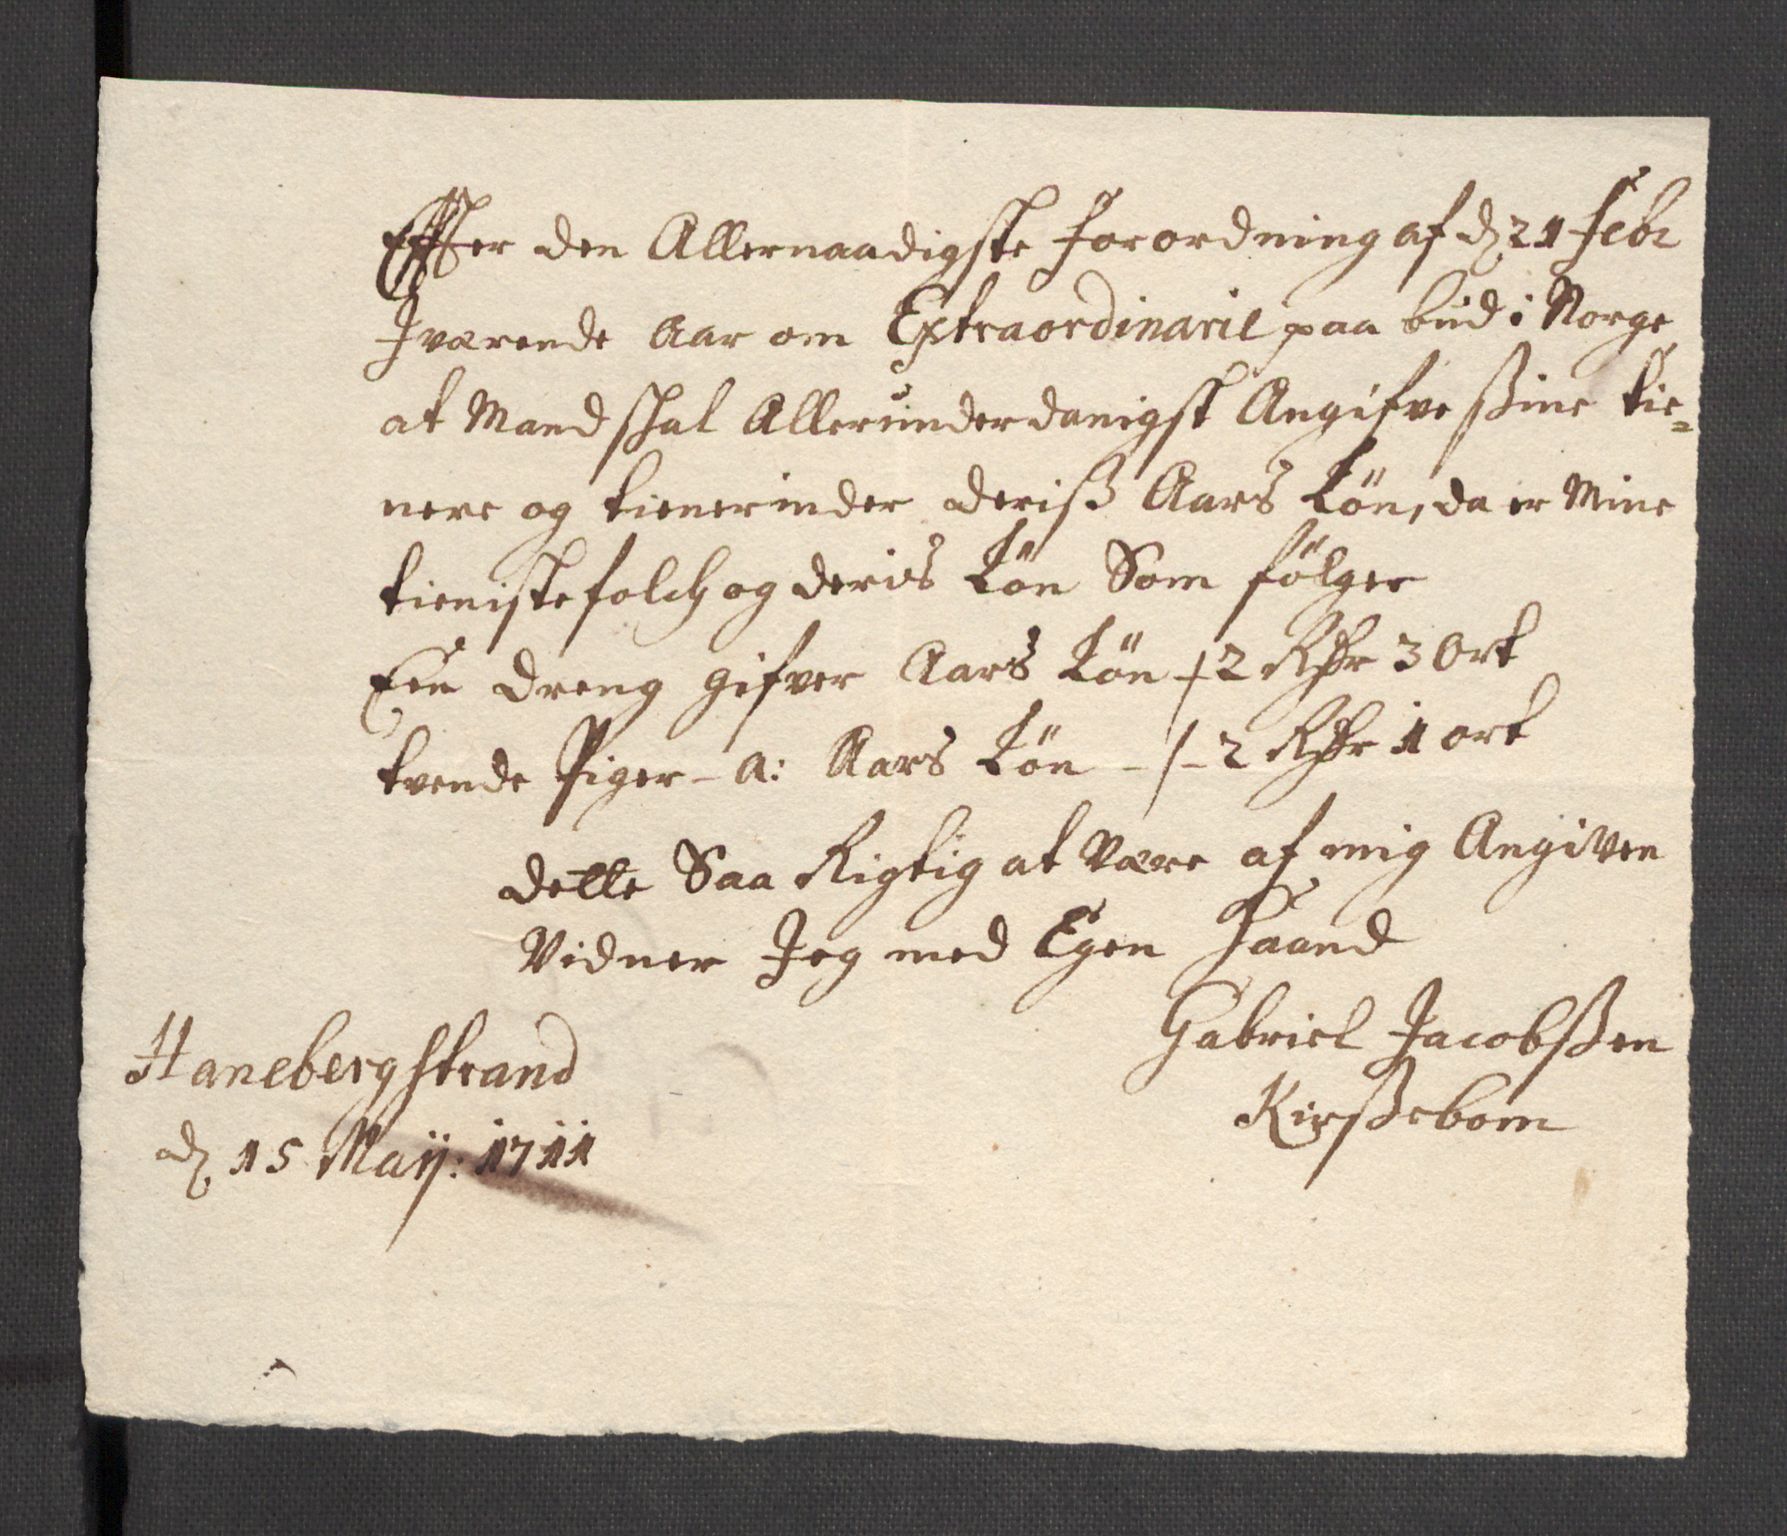 Effter den Allernaadigste forordning af dȝ 21 febr
Jværende Aar om Extraordinarie paa bud i Norge
at Mand shal Allerunderdanigst Angifve ßine tie=
nere og tienerinder deriß Aars Lön, da er Mine
tienistefolch og deris Lön Som fölger
Een dreng gifver Aars Lön /2 Rdr 3 Ort
tvende Piger - A: Aars Lön - /- 2 Rdr 1 ort
dette Saa Rigtig at Være af mig Angiven
Vidner Jeg med Egen Haand
Gabriel Jacobßen
Kirßebom
Hanebergstrand
dȝ 15 Maij: 1711